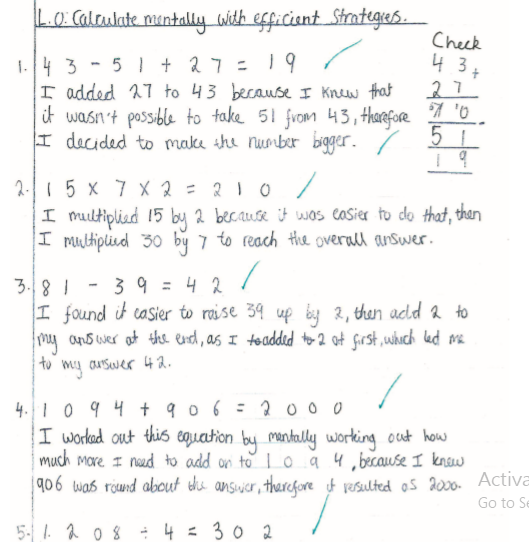 L.O: Calculate mentally with efficient strategies.
Check
1. 43 - 51 + 27 = 19
43+
I added 27 to 43 because I knew that
27
it wasn't possible to take 51 from 43, therefore
I decided to make the number bigger.
51
19
2. 15 x 7 x 2 = 210
I multiplied 15 by 2 because it was easier to do that, then
I multiplied 30 by 7 to reach the overall answer.
3. 81 - 39 = 42
I found it easier to raise 39 up by 2, then add 2 to
my answer at the end, as I added 2 at first, which led me
to my answer 42.
4. 1094 + 906 = 2000
I worked out this equation by mentally working out how
much more I need to add on to 1094, because I knew
906 was round about the answer, therefore it resulted as 2000.
Activa
Go to Se
5. 1.208 ÷ 4 = 302